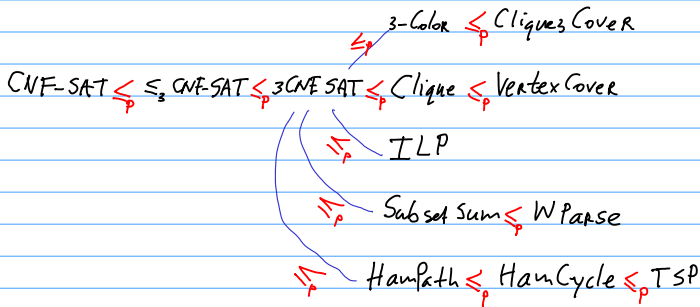 ≤p 3-Color ≤p Clique3Cover
CNF-SAT ≤p ≤3 CNF-SAT ≤p 3CNF SAT ≤p Clique ≤p VertexCover
≤p ILP
≤p Subset Sum ≤p WParse
≤p HamPath ≤p HamCycle ≤p TSP